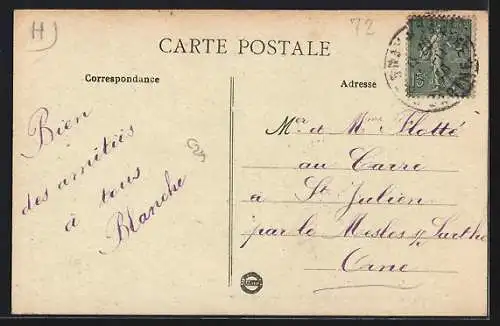 H)
72
CARTE POSTALE
Correspondance
Adresse
Bien
des amitiés
à tous
Blanche
Mr et Mme Flotté
au Carré
à St Julien
par le Mesles s/ Sarthe
Orne